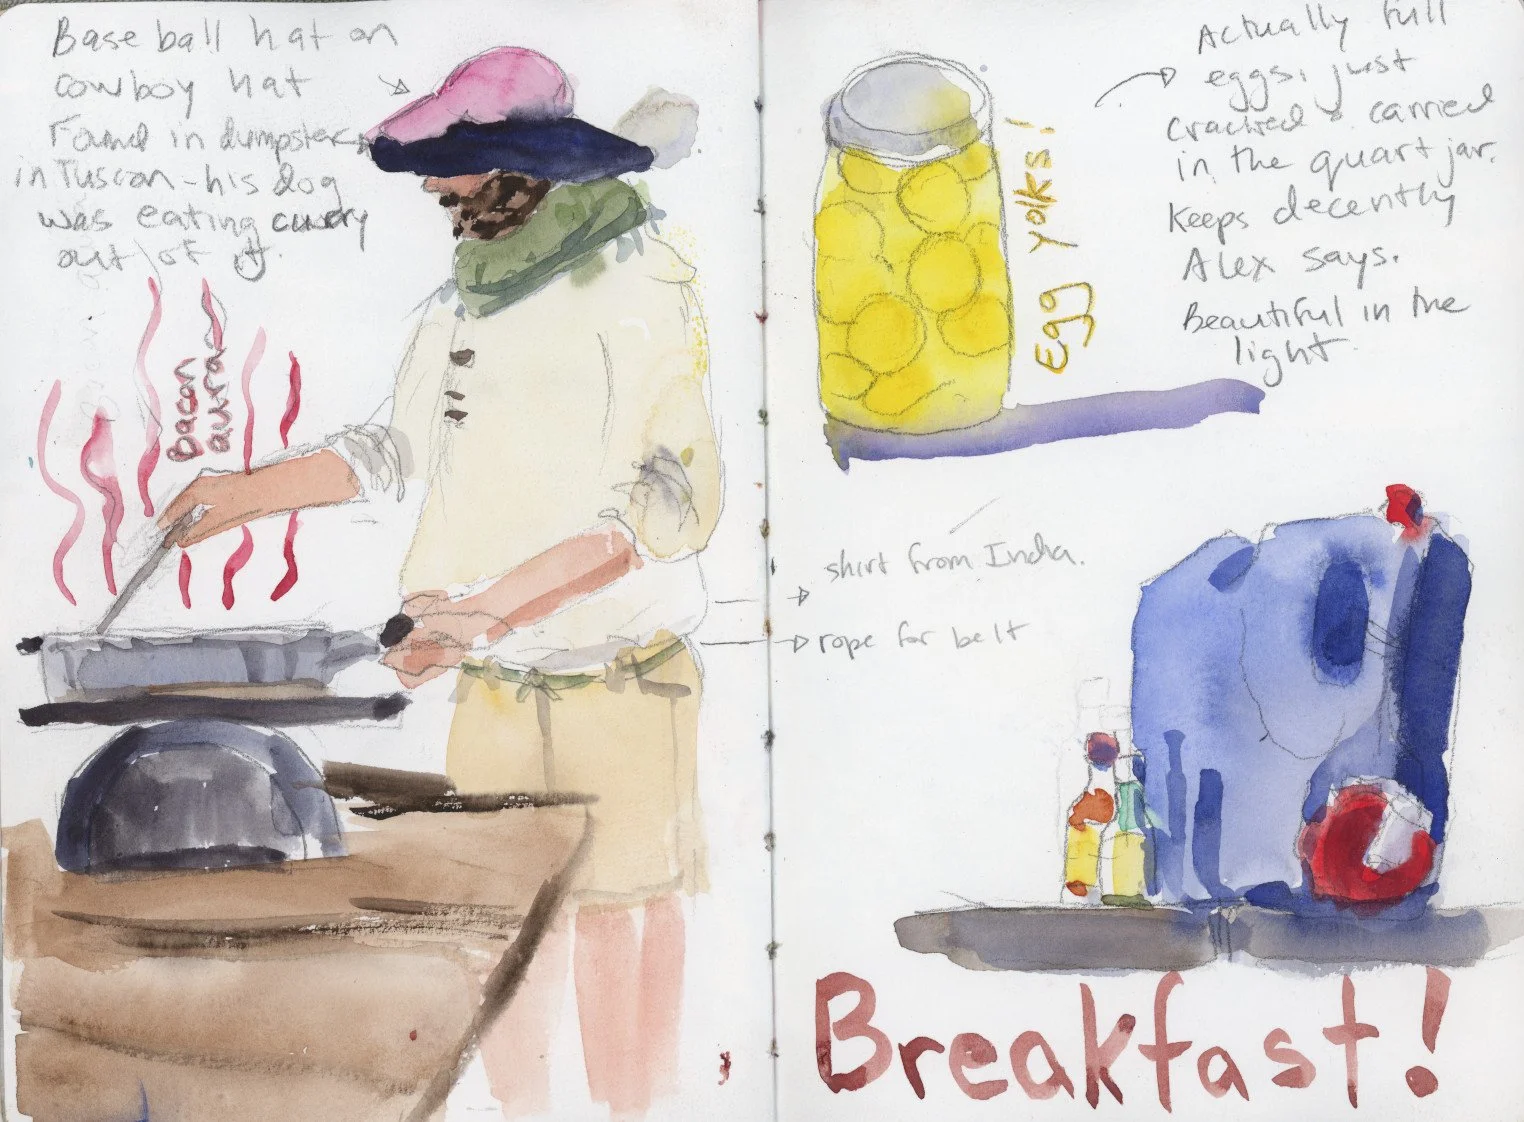 Baseball hat on
cowboy hat
Found in dumpster
in Tuscon - his dog
was eating curry
out of it.
Bacon
aura
Egg yolks!
Actually full
eggs, just
cracked & carried
in the quart jar.
Keeps decently
Alex says.
Beautiful in the
light.
shirt from India.
rope for belt
Breakfast!